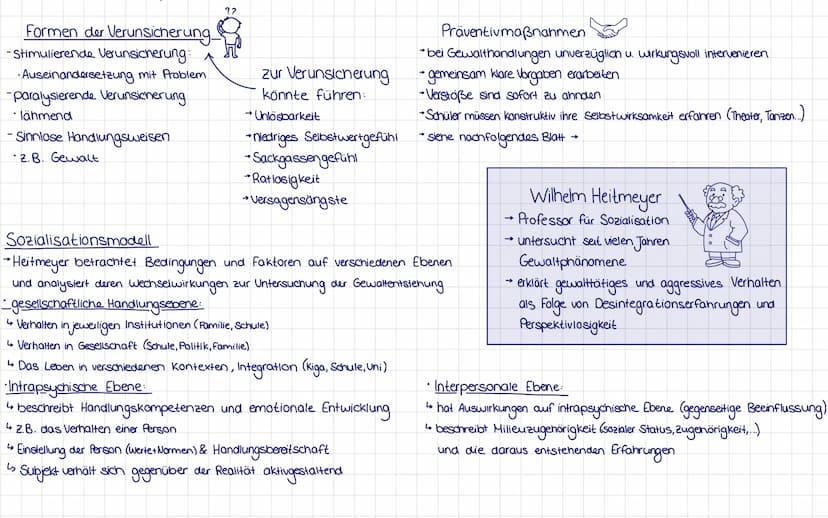 ??
Formen der Verunsicherung
-stimulierende Verunsicherung:
·Auseinandersetzung mit Problem
-paralysierende Verunsicherung
·lähmend
-Sinnlose Handlungsweisen
·z.B. Gewalt
zur Verunsicherung
könnte führen:
→Unlösbarkeit
→niedriges Selbstwertgefühl
→Sackgassengefühl
→Ratlosigkeit
→Versagensängste
Präventivmaßnahmen
→bei Gewalthandlungen unverzüglich u. wirkungsvoll intervenieren
→gemeinsam klare Vorgaben erarbeiten
→Verstöße sind sofort zu ahnden
→Schüler müssen konstruktiv ihre Selbstwirksamkeit erfahren (Theater, Tanzen..)
→siehe nachfolgendes Blatt →
Wilhelm Heitmeyer
→ Professor für Sozialisation
→ untersucht seit vielen Jahren
Gewaltphänomene
→ erklärt gewalttätiges und aggressives Verhalten
als Folge von Desintegrationserfahrungen und
Perspektivlosigkeit
Sozialisationsmodell
→Heitmeyer betrachtet Bedingungen und Faktoren auf verschiedenen Ebenen
und analysiert deren Wechselwirkungen zur Untersuchung der Gewaltentstehung
·gesellschaftliche Handlungsebene:
↳ Verhalten in jeweiligen Institutionen (Familie, Schule)
↳ Verhalten in Gesellschaft (Schule, Politik, Familie)
↳ Das Leben in verschiedenen Kontexten, Integration (Kiga, Schule, Uni)
·Intrapsychische Ebene:
↳ beschreibt Handlungskompetenzen und emotionale Entwicklung
↳ z.B. das Verhalten einer Person
↳ Einstellung der Person (Werte+Normen) & Handlungsbereitschaft
↳ Subjekt verhält sich gegenüber der Realität aktivgestaltend
· Interpersonale Ebene:
↳ hat Auswirkungen auf intrapsychische Ebene (gegenseitige Beeinflussung)
↳ beschreibt Milieuzugehörigkeit (sozialer Status, Zugehörigkeit,...)
und die daraus entstehenden Erfahrungen